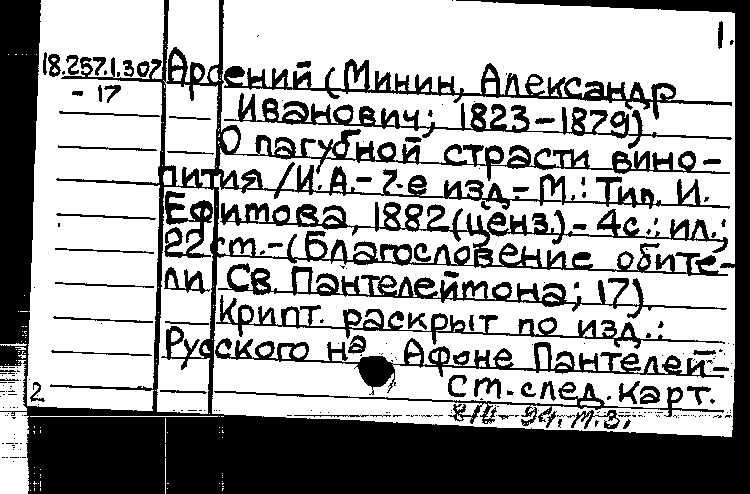 1.
18.257.1.307 Арсений (Минин, Александр
- 17 Иванович; 1823-1879).
О пагубной страсти вино-
пития / И. А. - 7-е изд. - М.: Тип. И.
Ефитова, 1882 (ценз.). - 4с.: ил.;
22 ст. - (Благословение обите-
ли Св. Пантелейтона; 17).
Крипт. раскрыт по изд.:
Русского на Афоне Пантелей-
Ст. след. карт.
2